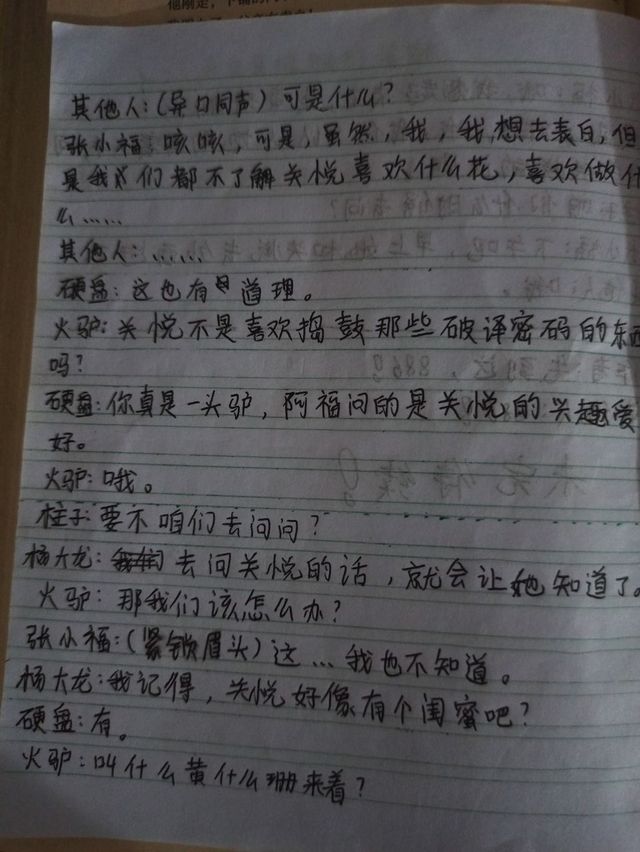 其他人:(异口同声)可是什么?
张小福:咳咳,可是,虽然,我,我,想去表白,但
是我们都不了解关悦喜欢什么花,喜欢做什
么……
其他人:……
硬盘:这也有道理。
火驴:关悦不是喜欢捣鼓那些破译密码的东西
吗?
硬盘:你真是一头驴,阿福问的是关悦的兴趣爱
好。
火驴:哦。
柱子:要不咱们去问问?
杨大龙:去问关悦的话,就会让她知道了。
火驴:那我们该怎么办?
张小福:(紧锁眉头)这…我也不知道。
杨大龙:我记得,关悦好像有个闺蜜吧?
硬盘:有。
火驴:叫什么黄什么珊来着?